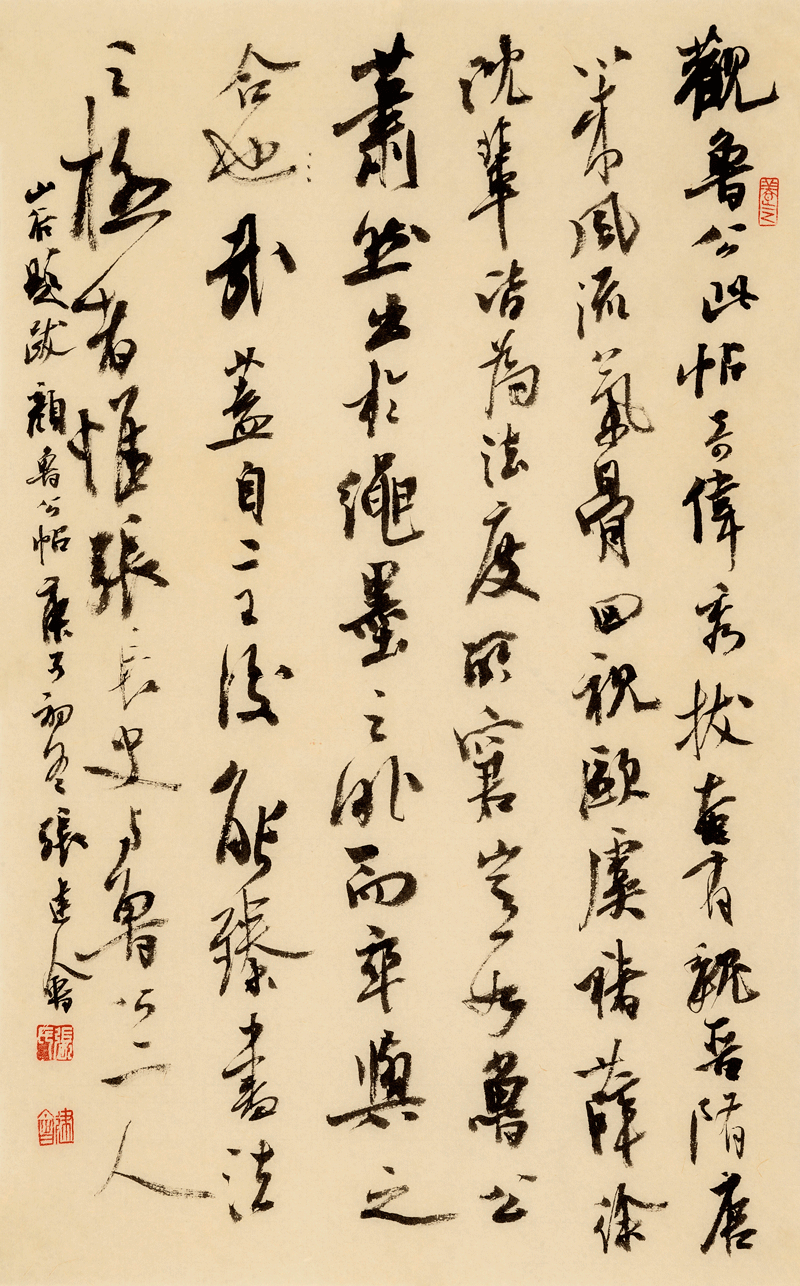 觀魯公此帖奇偉秀拔奄有魏晉隋唐
以來風流氣骨回視歐虞褚薛徐
沈輩皆為法度所窘豈如魯公
蕭然出於繩墨之外而卒與之
合也哉蓋自二王後能臻書法
之極者惟張長史與魯公二人
山谷題跋顏魯公帖庚子初冬張建會
張氏
建會